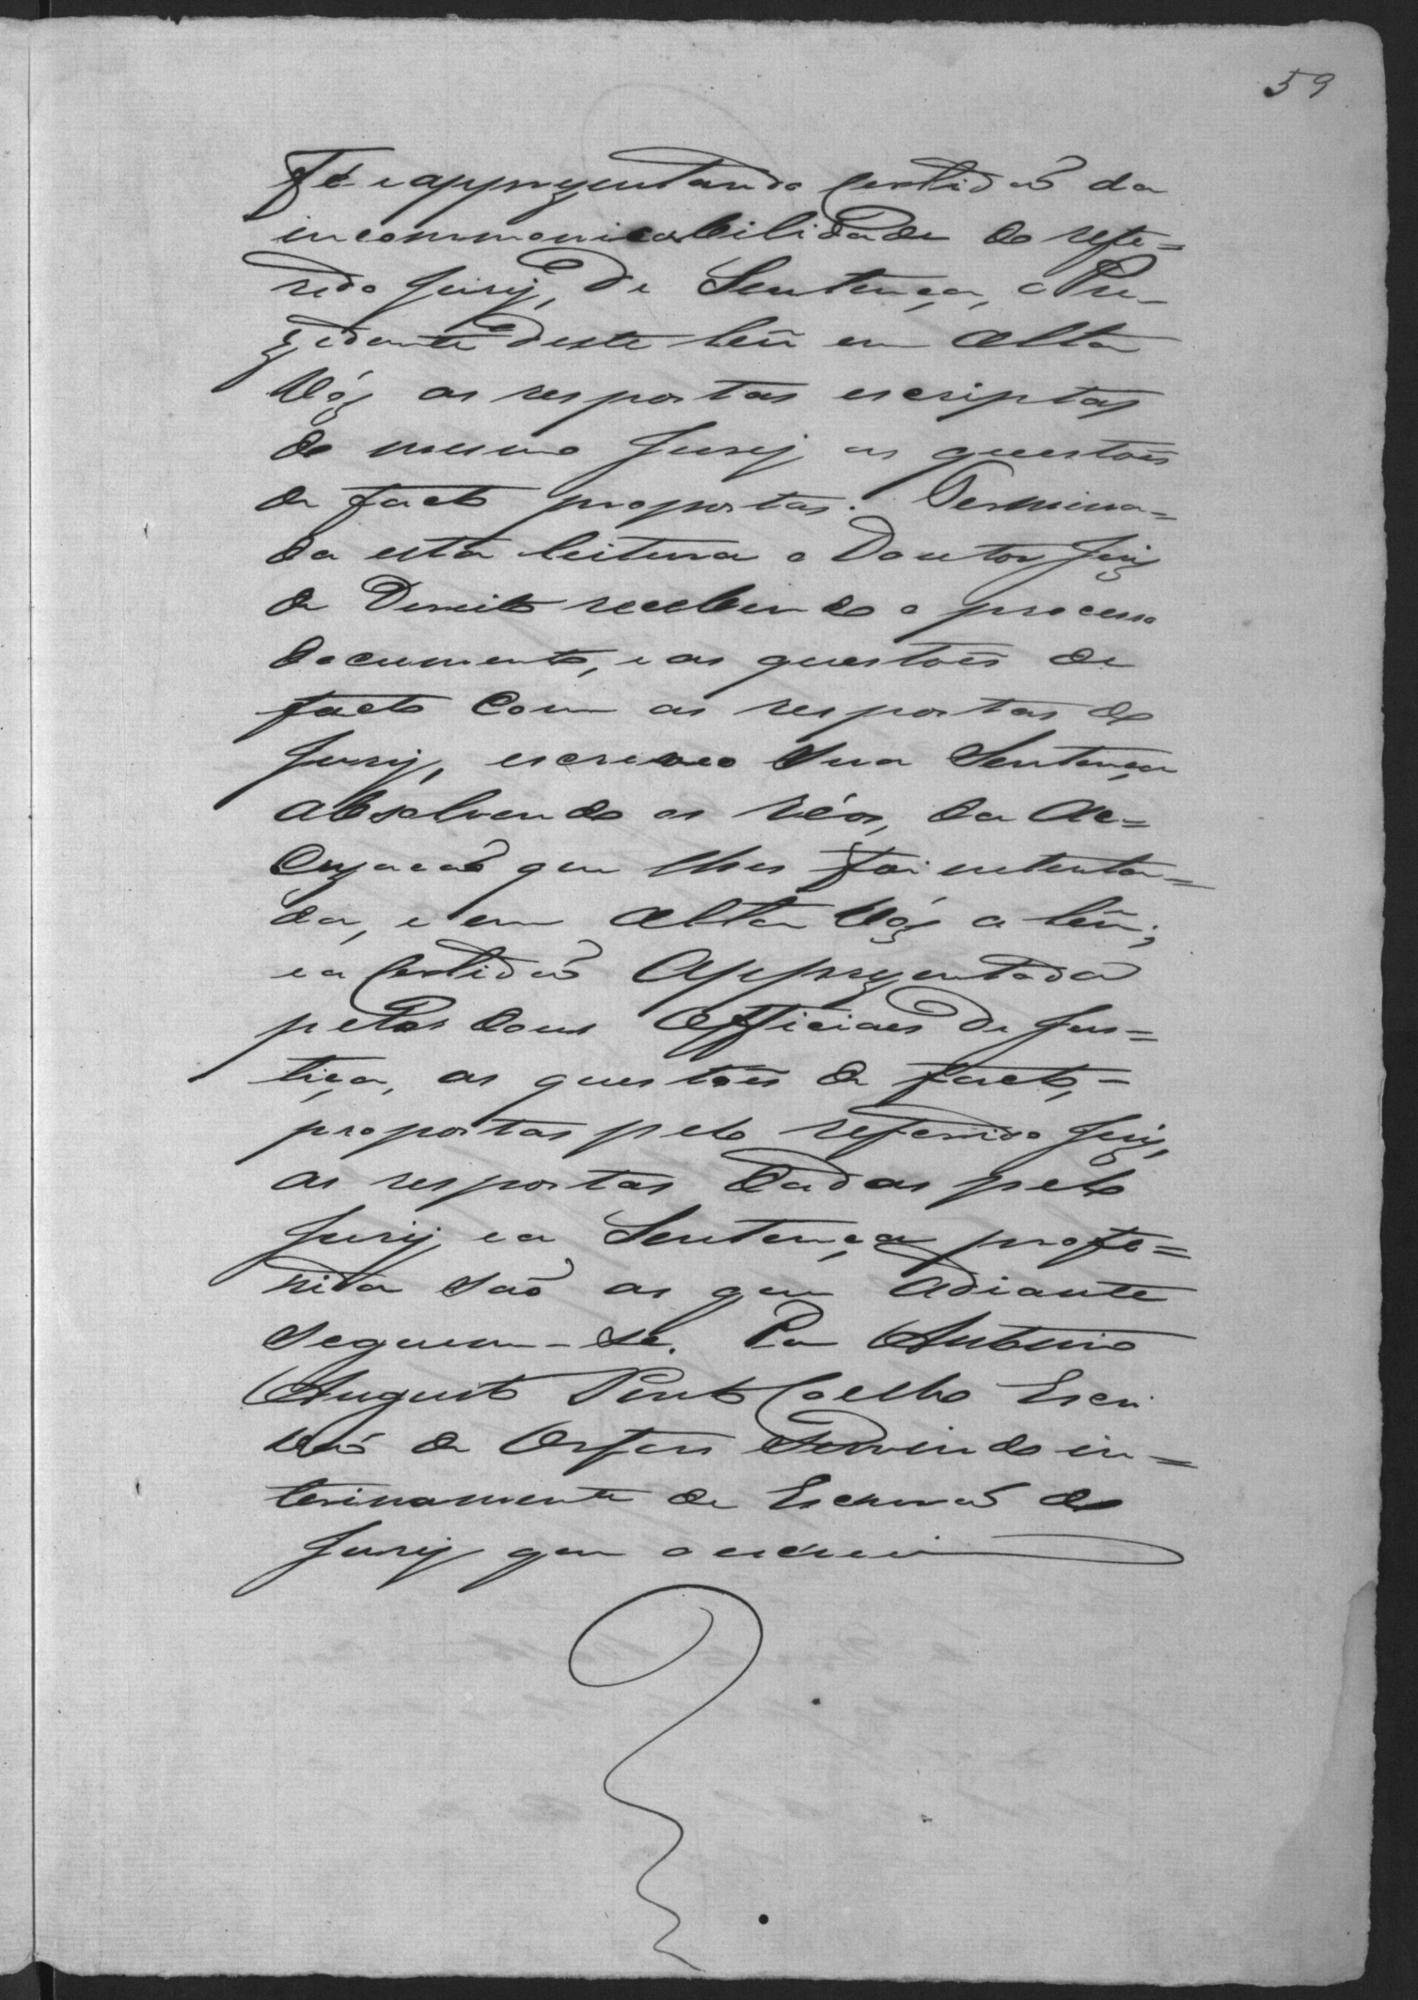 59
Fé e apprezentando Certidaõ da
incommonicabilidade do refe=
rido Jury, de Sentença, o Pre-
zidente deste leũ em alta
Vóz as respostas escriptas
do mesmo Jury as questoẽs
de facto propostas. Termina=
da esta leitura o Doutor Juiz
de Direito recebendo o processo
documento, e as questoẽs de
facto Com as respostas do
Jury, escreveo Sua Sentença
absolvendo os réos, da Ac=
Cuzacaõ que lhes foi intenta=
da, e em alta Vóz a leũ;
e a Certidaõ Apprezentada
pelos dous Officiaes de Jus=
tiça, as questoẽs de facto,=
propostas pelo referido Juiz,
as respostas dadas pelo
Jury e a Sentença profe=
rida saõ as que adiante
Seguem-se. Eu Antonio
Augusto Pinto Coelho Escri
vaõ de Orfaos Servindo in=
terinamente de Escrivaõ do
Jury que o escrevi